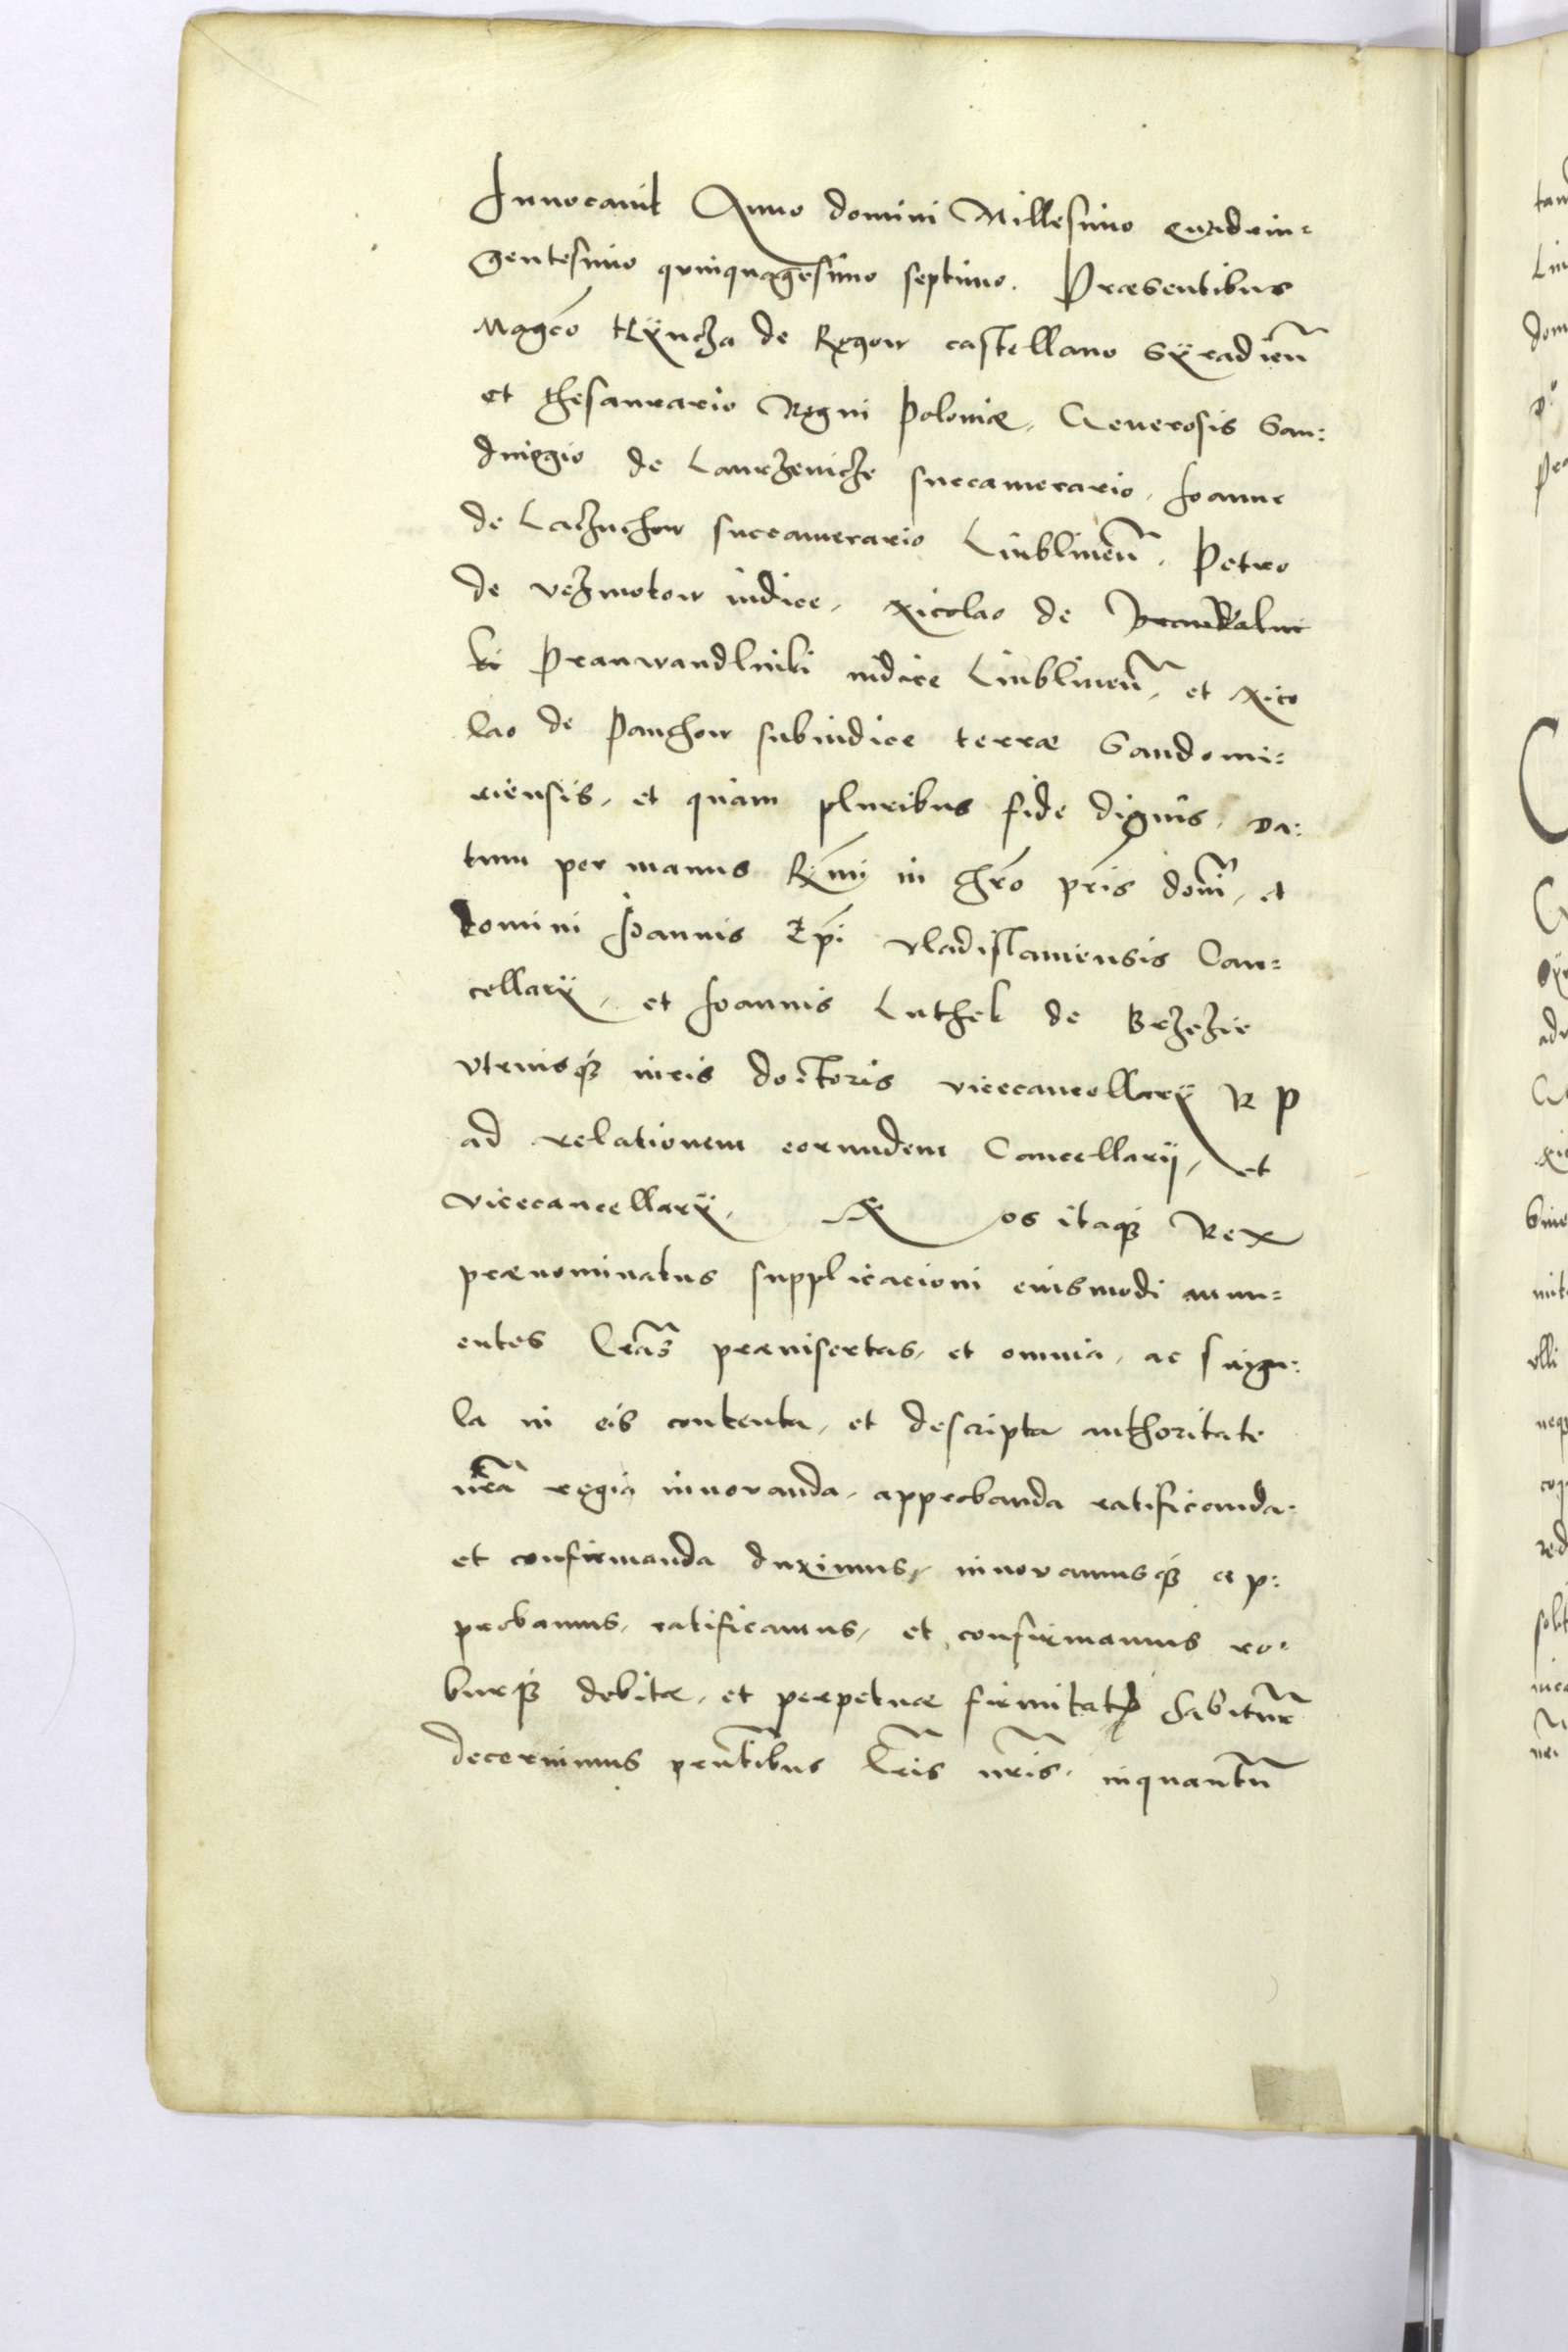 Innocauit Anno domini Millesimo quadrin=
gentesimo quinquagesimo septimo. Præsentibus
Magco Hÿncza de Rogow castellano Sÿradien
et thesaurario Regni Poloniæ, Generosis San=
diuogio de Laurzenicze succamerario, Joanne
de Laczuchow succamerario Liublinen, Petro
de vezmotow iudice, Nicolao de
ki Pranwandlniki iudice Liublinen, et Nico
lao de Panchow subiudice terræ Sandomi=
riensis, et quàm pluribus fide dignis, Da=
tum per manus Rmi in Chro pris domi, et
domini Joannis Epi Vladislauiensis Can=
cellarÿ, et Joannis Luthek de Brzezie
Vtriusqȝ iuris doctoris vicecancellarÿ R P
ad relationem eorundem Cancellarij, et
vicecancellarÿ, Nos itaqȝ Rex
prænominatus supplicacioni eiusmodi annu=
entes Lras præinsertas, et omnia, ac singu=
la in eis contenta, et descripta authoritate
nra regia innouanda, approbanda ratificanda=
et confirmanda duximus, innouamusqȝ ap=
probamus, ratificamus, et confirmamus ro=
burqȝ debitæ, et perpetuæ firmitatis habitur
decernimus pruntibus Lris nris, inquantu